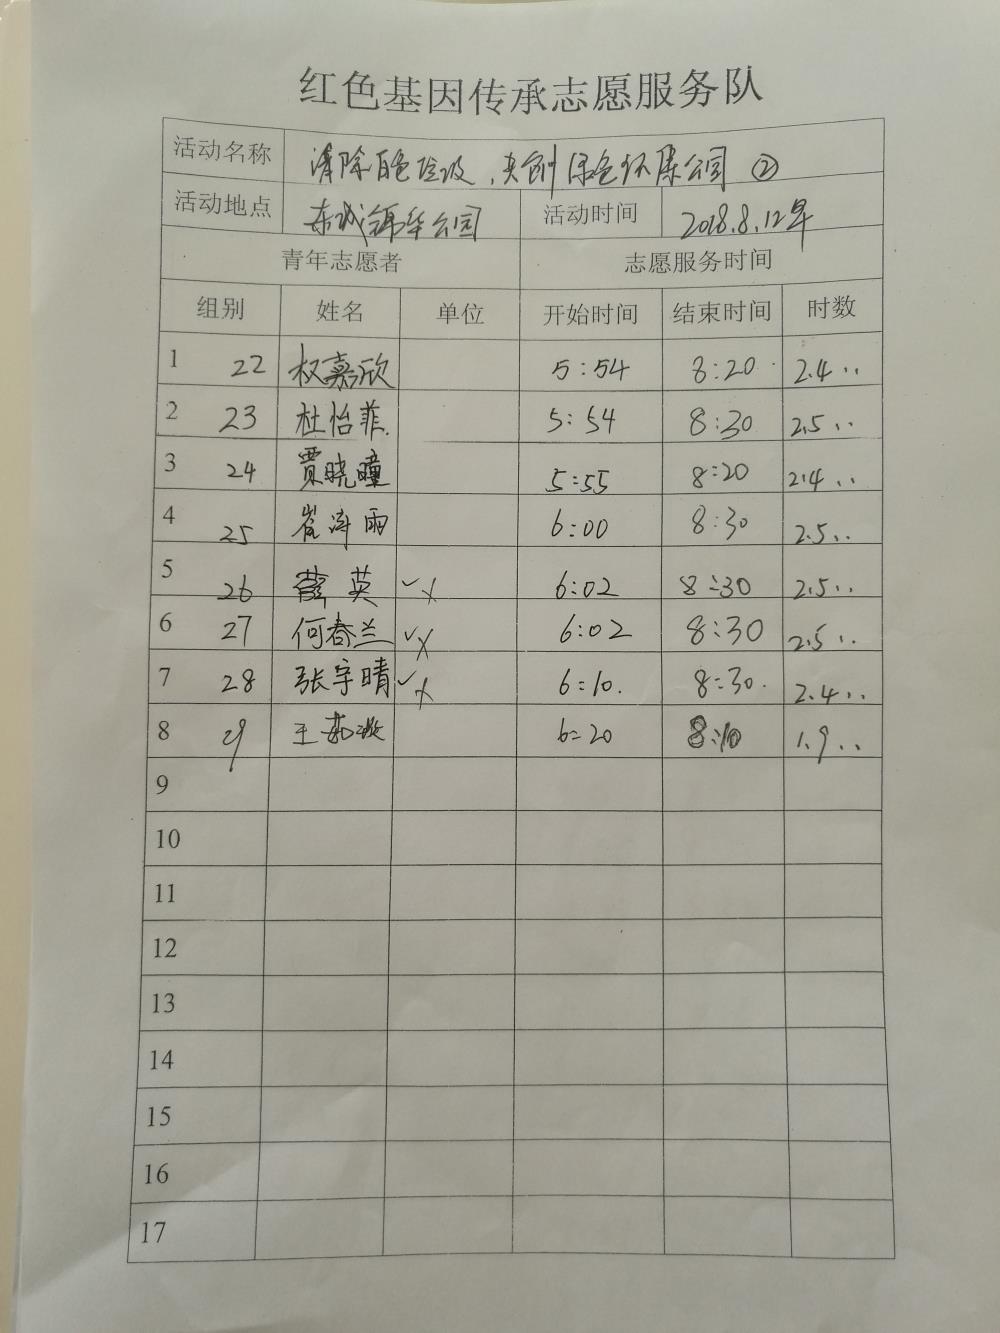 红色基因传承志愿服务队
活动名称 清除白色垃圾,共创绿色怀康公园 ②
活动地点 东诚锦华公园 活动时间 2018.8.12早
青年志愿者 志愿服务时间
组别 姓名 单位 开始时间 结束时间 时数
1 22 权嘉欣 5:54 8:20 2.4
2 23 杜怡菲 5:54 8:30 2.5
3 24 贾晓瞳 5:55 8:20 2.4
4 25 崔涛雨 6:00 8:30 2.5
5 26 薛英 ✓ X 6:02 8:30 2.5
6 27 何春兰 ✓ X 6:02 8:30 2.5
7 28 张宇晴 ✓ X 6:10. 8:30. 2.4
8 29 王 6:20 8:10 1.9
9
10
11
12
13
14
15
16
17